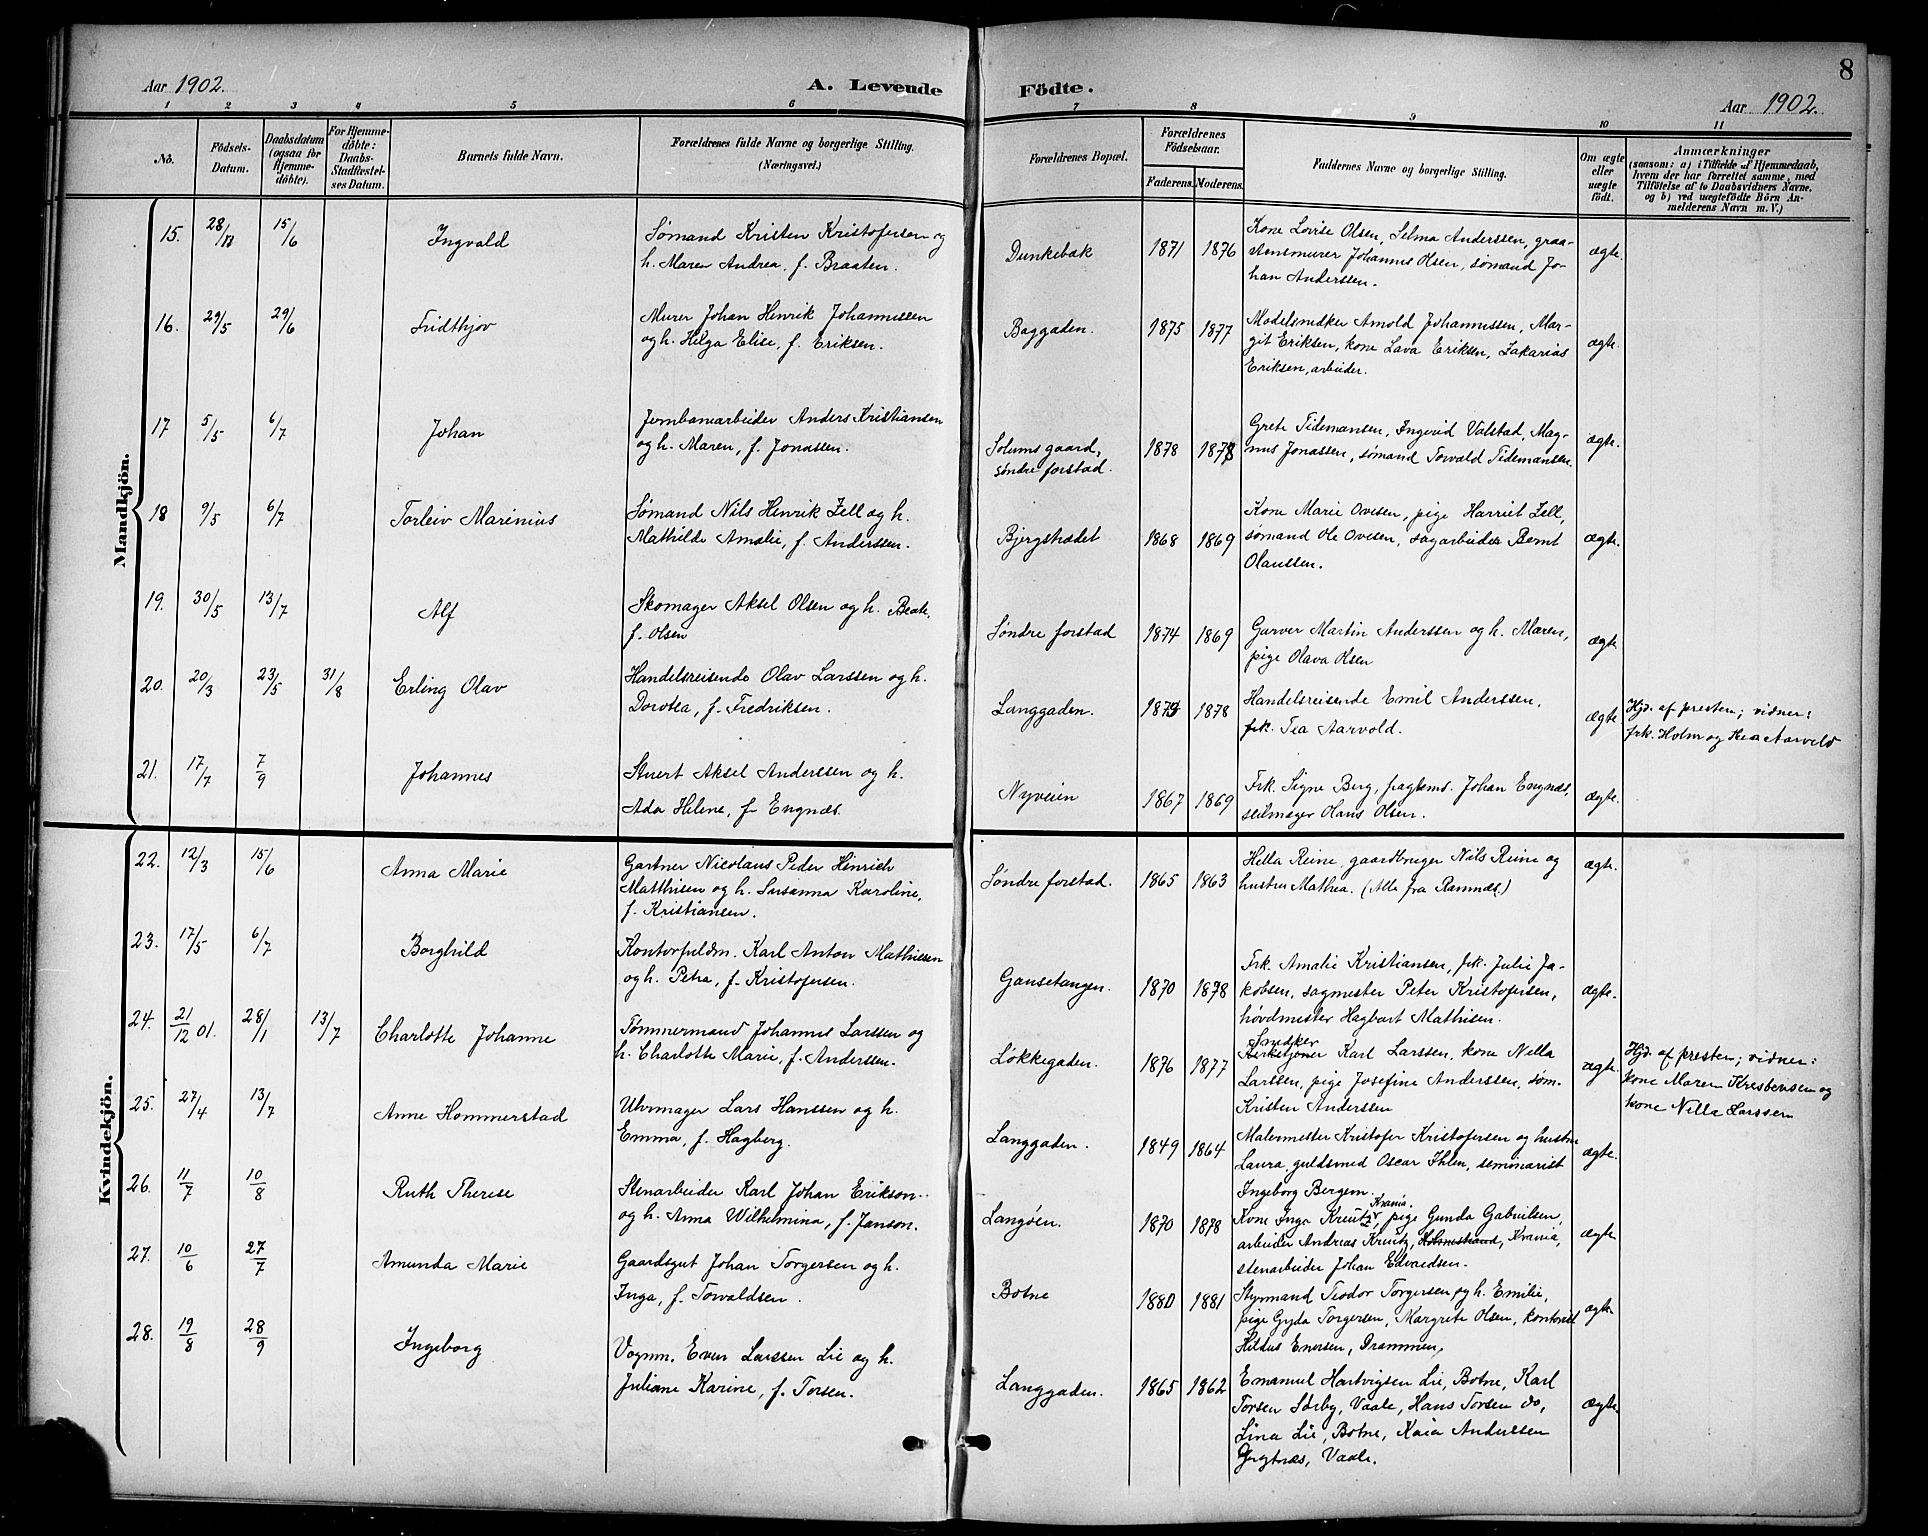 8
Aar 1902.
A. Levende
Födte.
Aar 1902.
1 2 3 4 5 6 7 8 9 10 11
No.
Födsels-
Datum.
Daabsdatum
(ogsaa for
Hjemme-
döbte).
For Hjemme-
döbte:
Daabs-
Stadfæstel-
ses Datum.
Barnets fulde Navn.
Forældrenes fulde Navne og borgerlige Stilling.
(Næringsvei.)
Forældrenes Bopæl.
Forældrenes
Födselsaar.
Faderens.
Moderens.
Faddernes Navne og borgerlige Stilling.
Om ægte
eller
uægte
födt.
Anmærkninger
(saasom: a) i Tilfælde af Hjemmedaab,
hvem der har forrettet samme, med
Tilföielse af to Daabsvidners Navne,
og b) ved uægtefödte Börn An-
melderens Navn m. V.)
Mandkjön.
15. 15/6 Ingvald
Sømand Kristen Kristofersen og
h. Maren Andrea, f. Braaten.
Dunkebæk 1871 1876
Kone Lovise Olsen, Selma Anderssen, graa-
stensmurer Johannes Olsen, sømand Jo-
han Anderssen.
ægte.
16. 29/5 29/6 Fridthjov
Murer Johan Henrik Johannessen
og h. Helga Elise, f. Eriksen.
Baggaden. 1875 1877
Modelsnedker Arnold Johannessen, Mar-
git Eriksen, kone Lava Eriksen, Sakarias
Eriksen, arbeider.
ægte.
17 5/5 6/7 Johan
Jernbanarbeider Anders Kristiansen
og h. Maren, f. Jonassen.
Solums gaard,
søndre forstad. 1878 1878
Grete Tidemansen, Ingvid Valstad, Mag-
nus Jonassen, sømand Torvald Tidemansen.
ægte.
18 9/5 6/7 Torleiv Marinius
Sømand Nils Henrik Fell og h.
Mathilde Amalie, f. Anderssen.
Bjergstrædet 1868 1869
Kone Marie Ovesen, pige Harriet Fell,
sømand Ole Ovesen, sagarbeider Bernt
Olaussen.
ægte.
19. 30/5 13/7 Alf
Skomager Aksel Olsen og h. Beate,
f. Olsen
Søndre forstad 1874 1869
Garver Martin Anderssen og h. Maren,
pige Olava Olsen
ægte
20. 20/3 23/5 31/8 Erling Olav
Handelsreisende Olav Larssen og h.
Dorotea, f. Fredriksen.
Langgaden. 1878
Handelsreisende Emil Anderssen,
frk. Tea Aarvold.
ægte
Hjd. af presten; vidner:
frk. Holm og Thea Aarvold
21. 17/7 7/9 Johannes
Stuert Aksel Anderssen og h.
Ada Helene, f. Engnæs.
Nyveien 1867 1869
Frk. Signe Berg, fragtems. Johan Engnæs,
seilmager Hans Olsen.
ægte.
Kvindekjön.
22. 12/3 15/6 Anna Marie
Gartner Nicolaus Peder Hinrich
Matthisen og h. Susanna Karoline,
f. Kristiansen.
Søndre forstad. 1865 1863
Hella Reine, gaardbruger Nils Reine og
hustru Mathea. (Alle fra Ramnæs.)
ægte.
23. 17/5 6/7 Borghild
Kontorfuldm. Karl Anton Mathiesen
og h. Petra, f. Kristofersen.
Gausetangen. 1870 1878
Frk. Amalie Kristiansen, frk. Julie Ja-
kobsen, sagmester Peter Kristofersen,
høvdmester Hagbart Mathisen.
ægte.
24. 21/12 01. 28/1 13/7 Charlotte Johanne
Tømmermand Johannes Larssen og
h. Charlotte Marie, f. Anderssen.
Løkkegaden. 1876 1877
Snedker
Karl Larssen, kone Nella
Larssen, pige Josefine Anderssen, søm.
Kristen Anderssen
ægte.
Hjd. af presten; vidner:
kone Maren Kristensen og
kone Nilla Larssen
25. 27/4 13/7 Anne Hommerstad
Uhrmager Lars Hanssen og h.
Emma, f. Hagberg.
Langgaden. 1849 1864
Malermester Kristofer Kristofersen og hustru
Laura, guldsmed Oscar Ihlen, seminarist
Ingeborg Bergem.
ægte.
26. 11/7 10/8 Ruth Therese
Stenarbeider Karl Johan Erikson
og h. Anna Wilhelmina, f. Janson.
Langøen. 1870 1878
Krania.
Kone Inga Kreutz, pige Gunda Gabrielsen,
arbeider Andreas Kreutz, Holmestrand, Krania,
stenarbeider Johan Edvardsen.
ægte
27. 10/6 27/7 Amunda Marie
Gaardsgut Johan Torgersen og h.
Inga, f. Torvaldsen.
Botne 1880 1881
Styrmand Teodor Torgersen og h. Emilie,
pige Gyda Torgersen, Margrete Olsen, kontorist
Hildus Enersen, Drammen,
ægte
28. 19/8 28/9 Ingeborg
Vognm. Even Larssen Lie og h.
Juliane Karine, f. Torsen.
Langgaden. 1865 1862
Emanuel Hartvigsen Lie, Botne, Karl
Torsen Sørby, Vaale, Hans Torsen do,
Lina Lie, Botne, Kaia Anderssen
Vaale.
ægte.